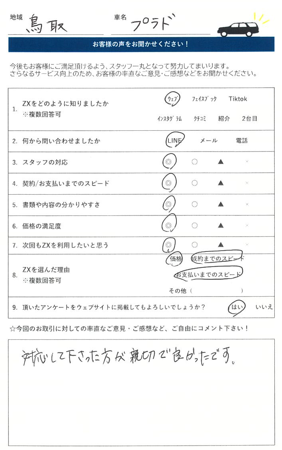 地域 鳥取 車名 プラド
お客様の声をお聞かせください！
今後もお客様にご満足頂けるよう、スタッフ一丸となって努力してまいります。
さらなるサービス向上のため、お客様の率直なご意見・ご感想などをお聞かせください。
1. ZXをどのように知りましたか ウェブ フェイスブック Tiktok
※複数回答可 インスタグラム クチコミ 紹介 2台目
2. 何から問い合わせましたか LINE メール 電話
3. スタッフの対応 ◎ 〇 ▲ ・
4. 契約/お支払いまでのスピード ◎ 〇 ▲ ・
5. 書類や内容の分かりやすさ ◎ 〇 ▲ ・
6. 価格の満足度 ◎ 〇 ▲ ・
7. 次回もZXを利用したいと思う ◎ 〇 ▲ ・
8. ZXを選んだ理由 価格 成約までのスピード
※複数回答可 お支払いまでのスピード
その他（
9. 頂いたアンケートをウェブサイトに掲載してもよろしいでしょうか？ はい いいえ
☆今回のお取引に対しての率直なご意見・ご感想など、ご自由にコメント下さい！
対応して下さった方が親切で良かったです。